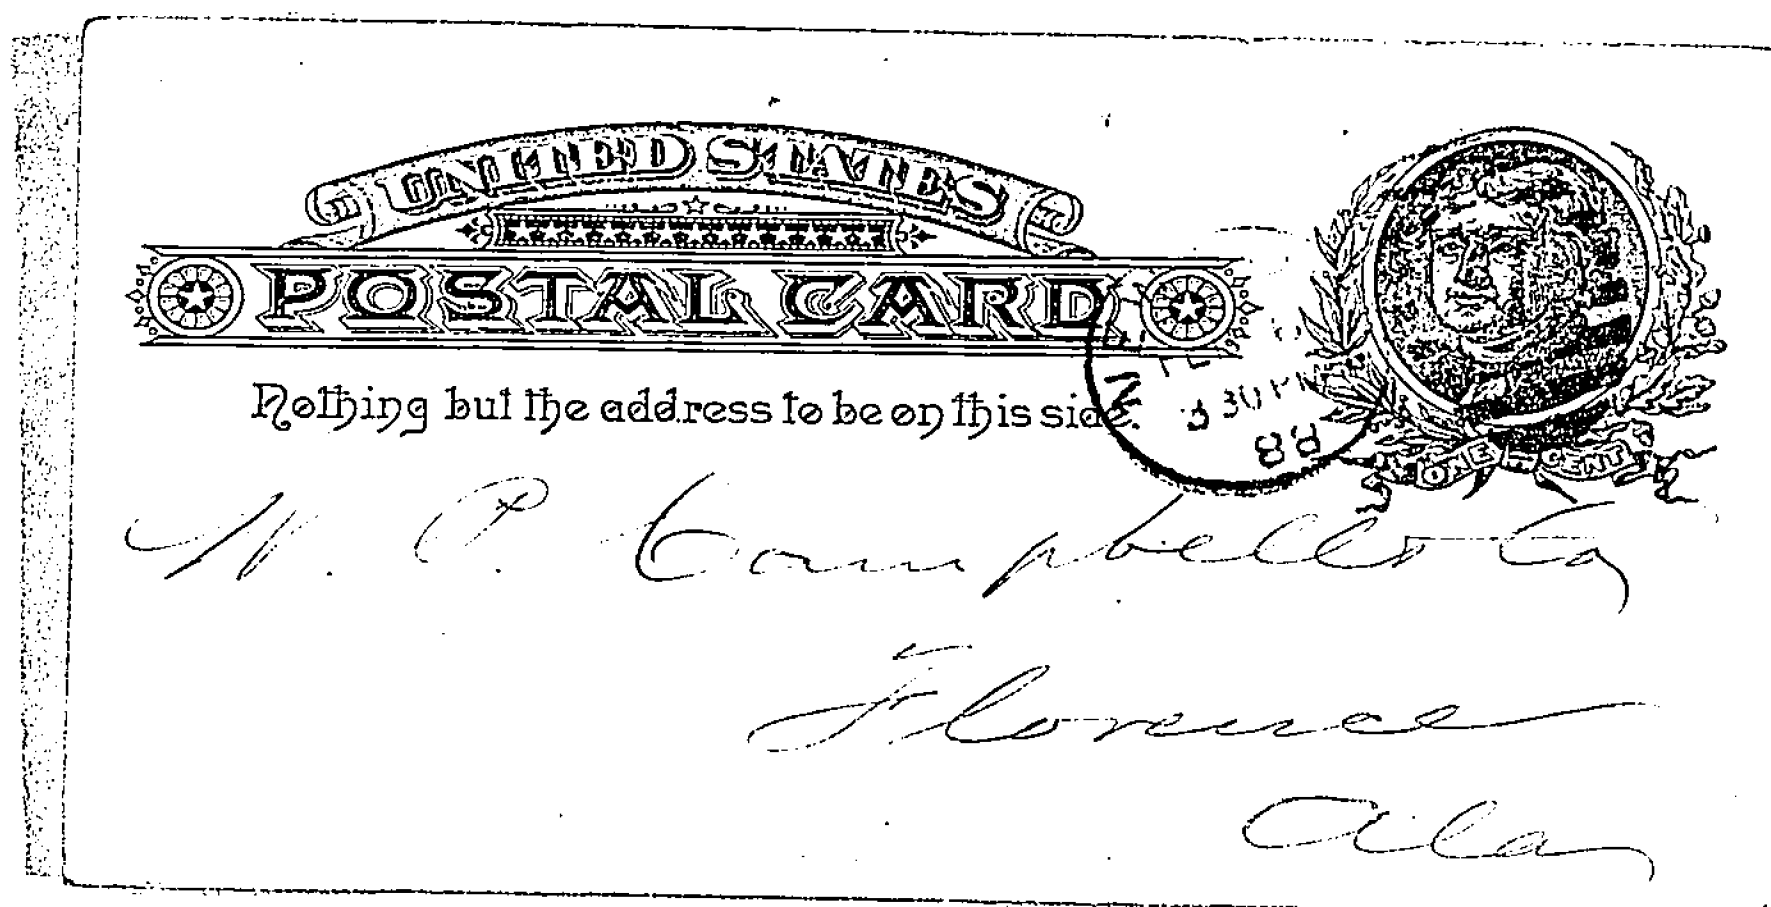 UNITED STATES
POSTAL CARD
Nothing but the address to be on this side.
3 30 PM
88
ONE CENT
W. P. Campbell & Co
Florence
Ala